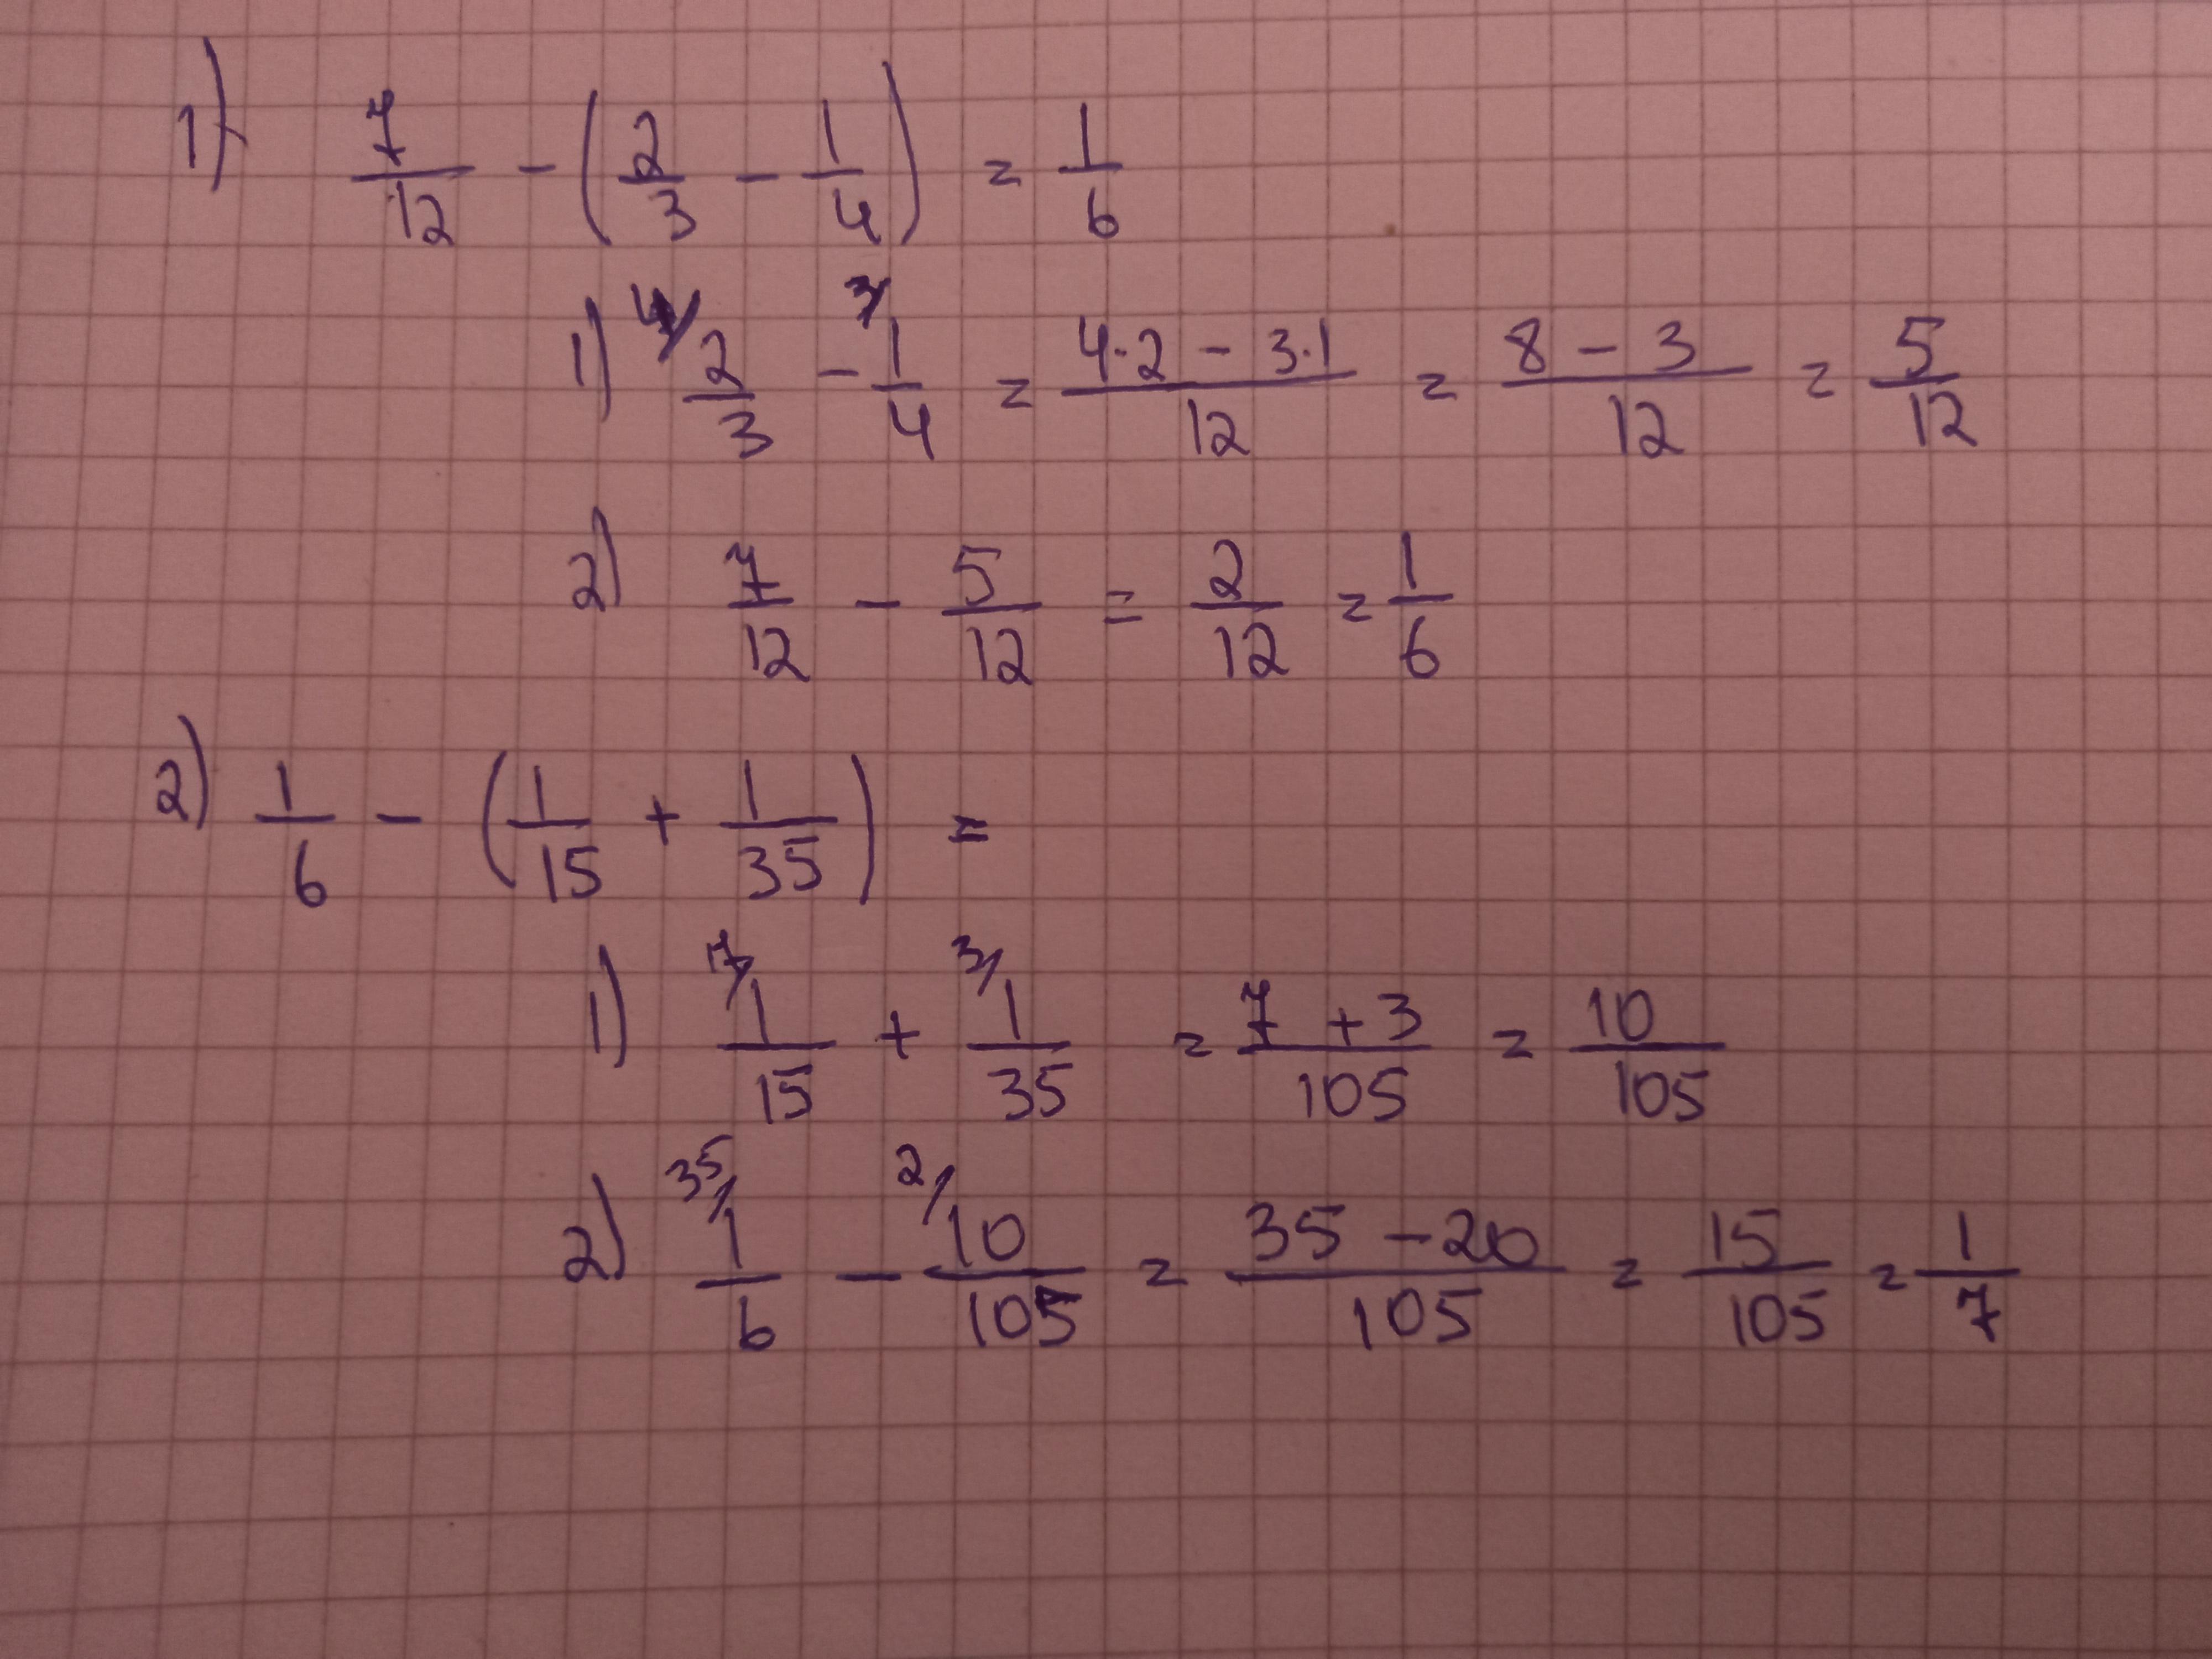 1) 7/12 - (2/3 - 1/4) = 1/6
1) 4/ 2/3 - 3/ 1/4 = 4·2 - 3·1/12 = 8 - 3/12 = 5/12
2) 7/12 - 5/12 = 2/12 = 1/6
2) 1/6 - (1/15 + 1/35) =
1) 7/ 1/15 + 3/ 1/35 = 7 + 3/105 = 10/105
2) 35/ 1/6 - 2/ 10/105 = 35 - 20/105 = 15/105 = 1/7